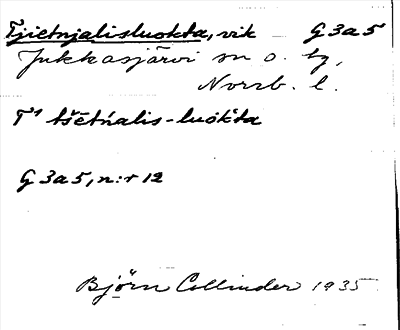 Tjietnjalisluokta, vik G 3a5
Jukkasjärvi sn o. tg,
Norrb. l.
T¹ tšētńalis-luok̄ta
G 3a5, n:r 12
Björn Collinder 1935